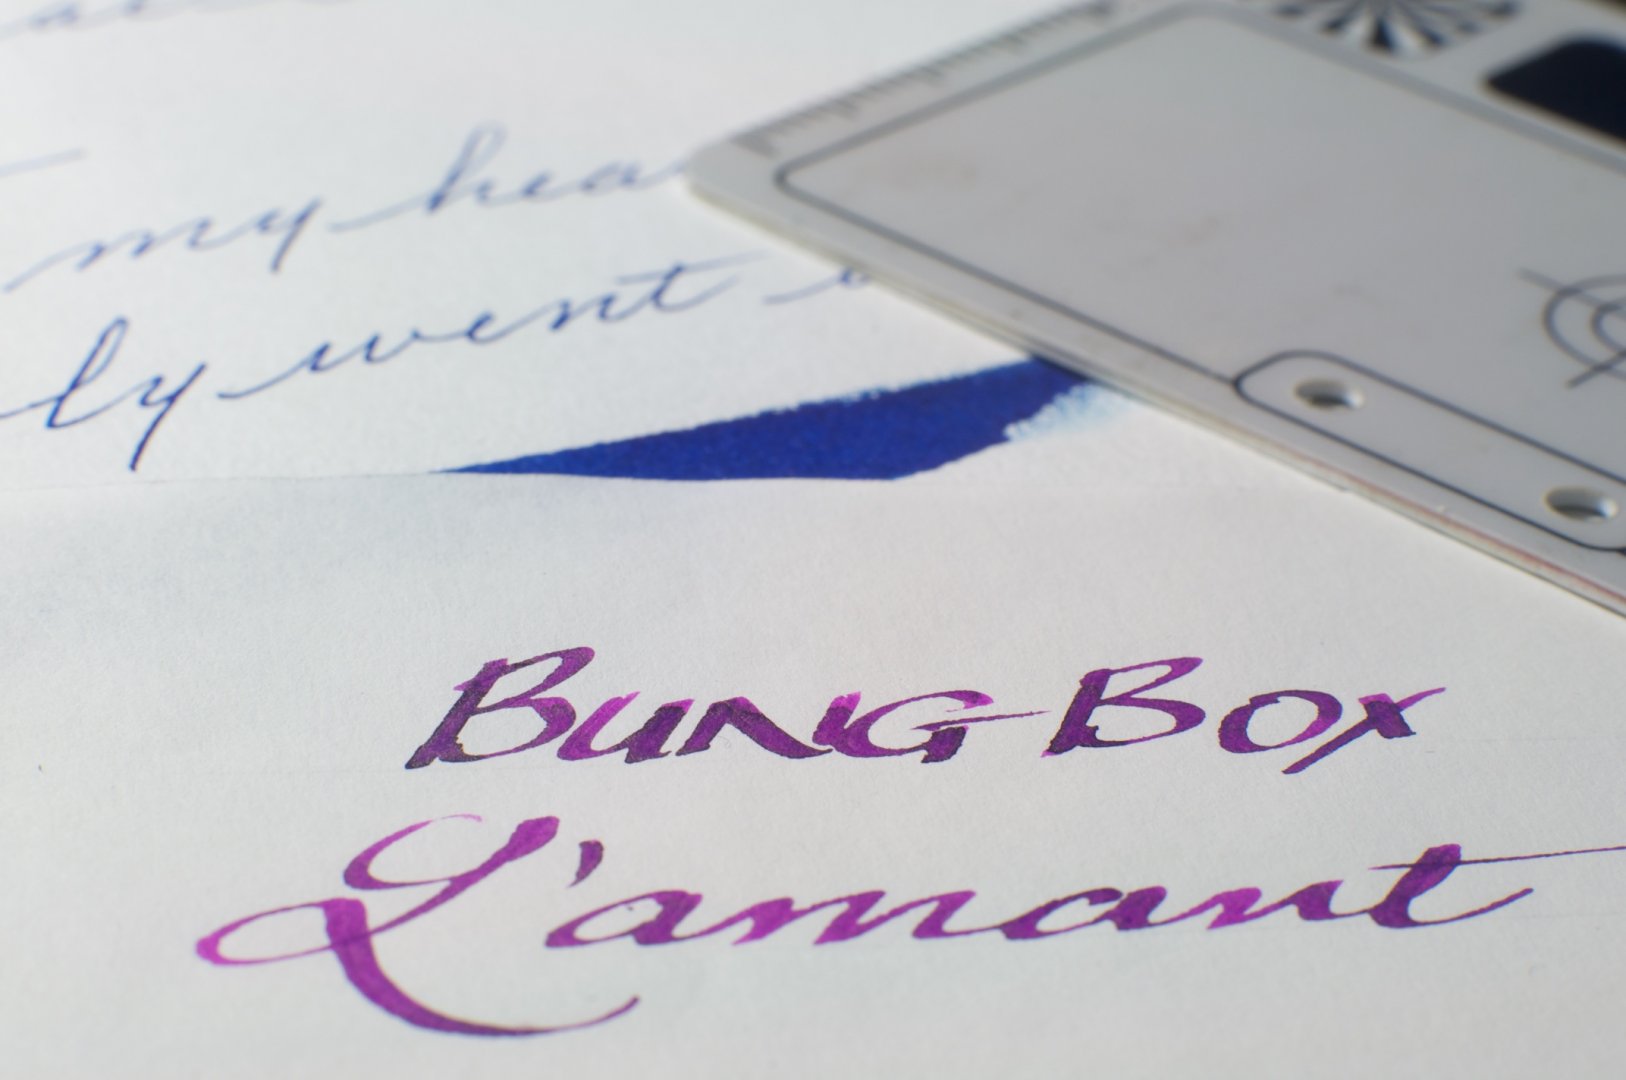 my hea
ly went
BUNG BOX
L'amant